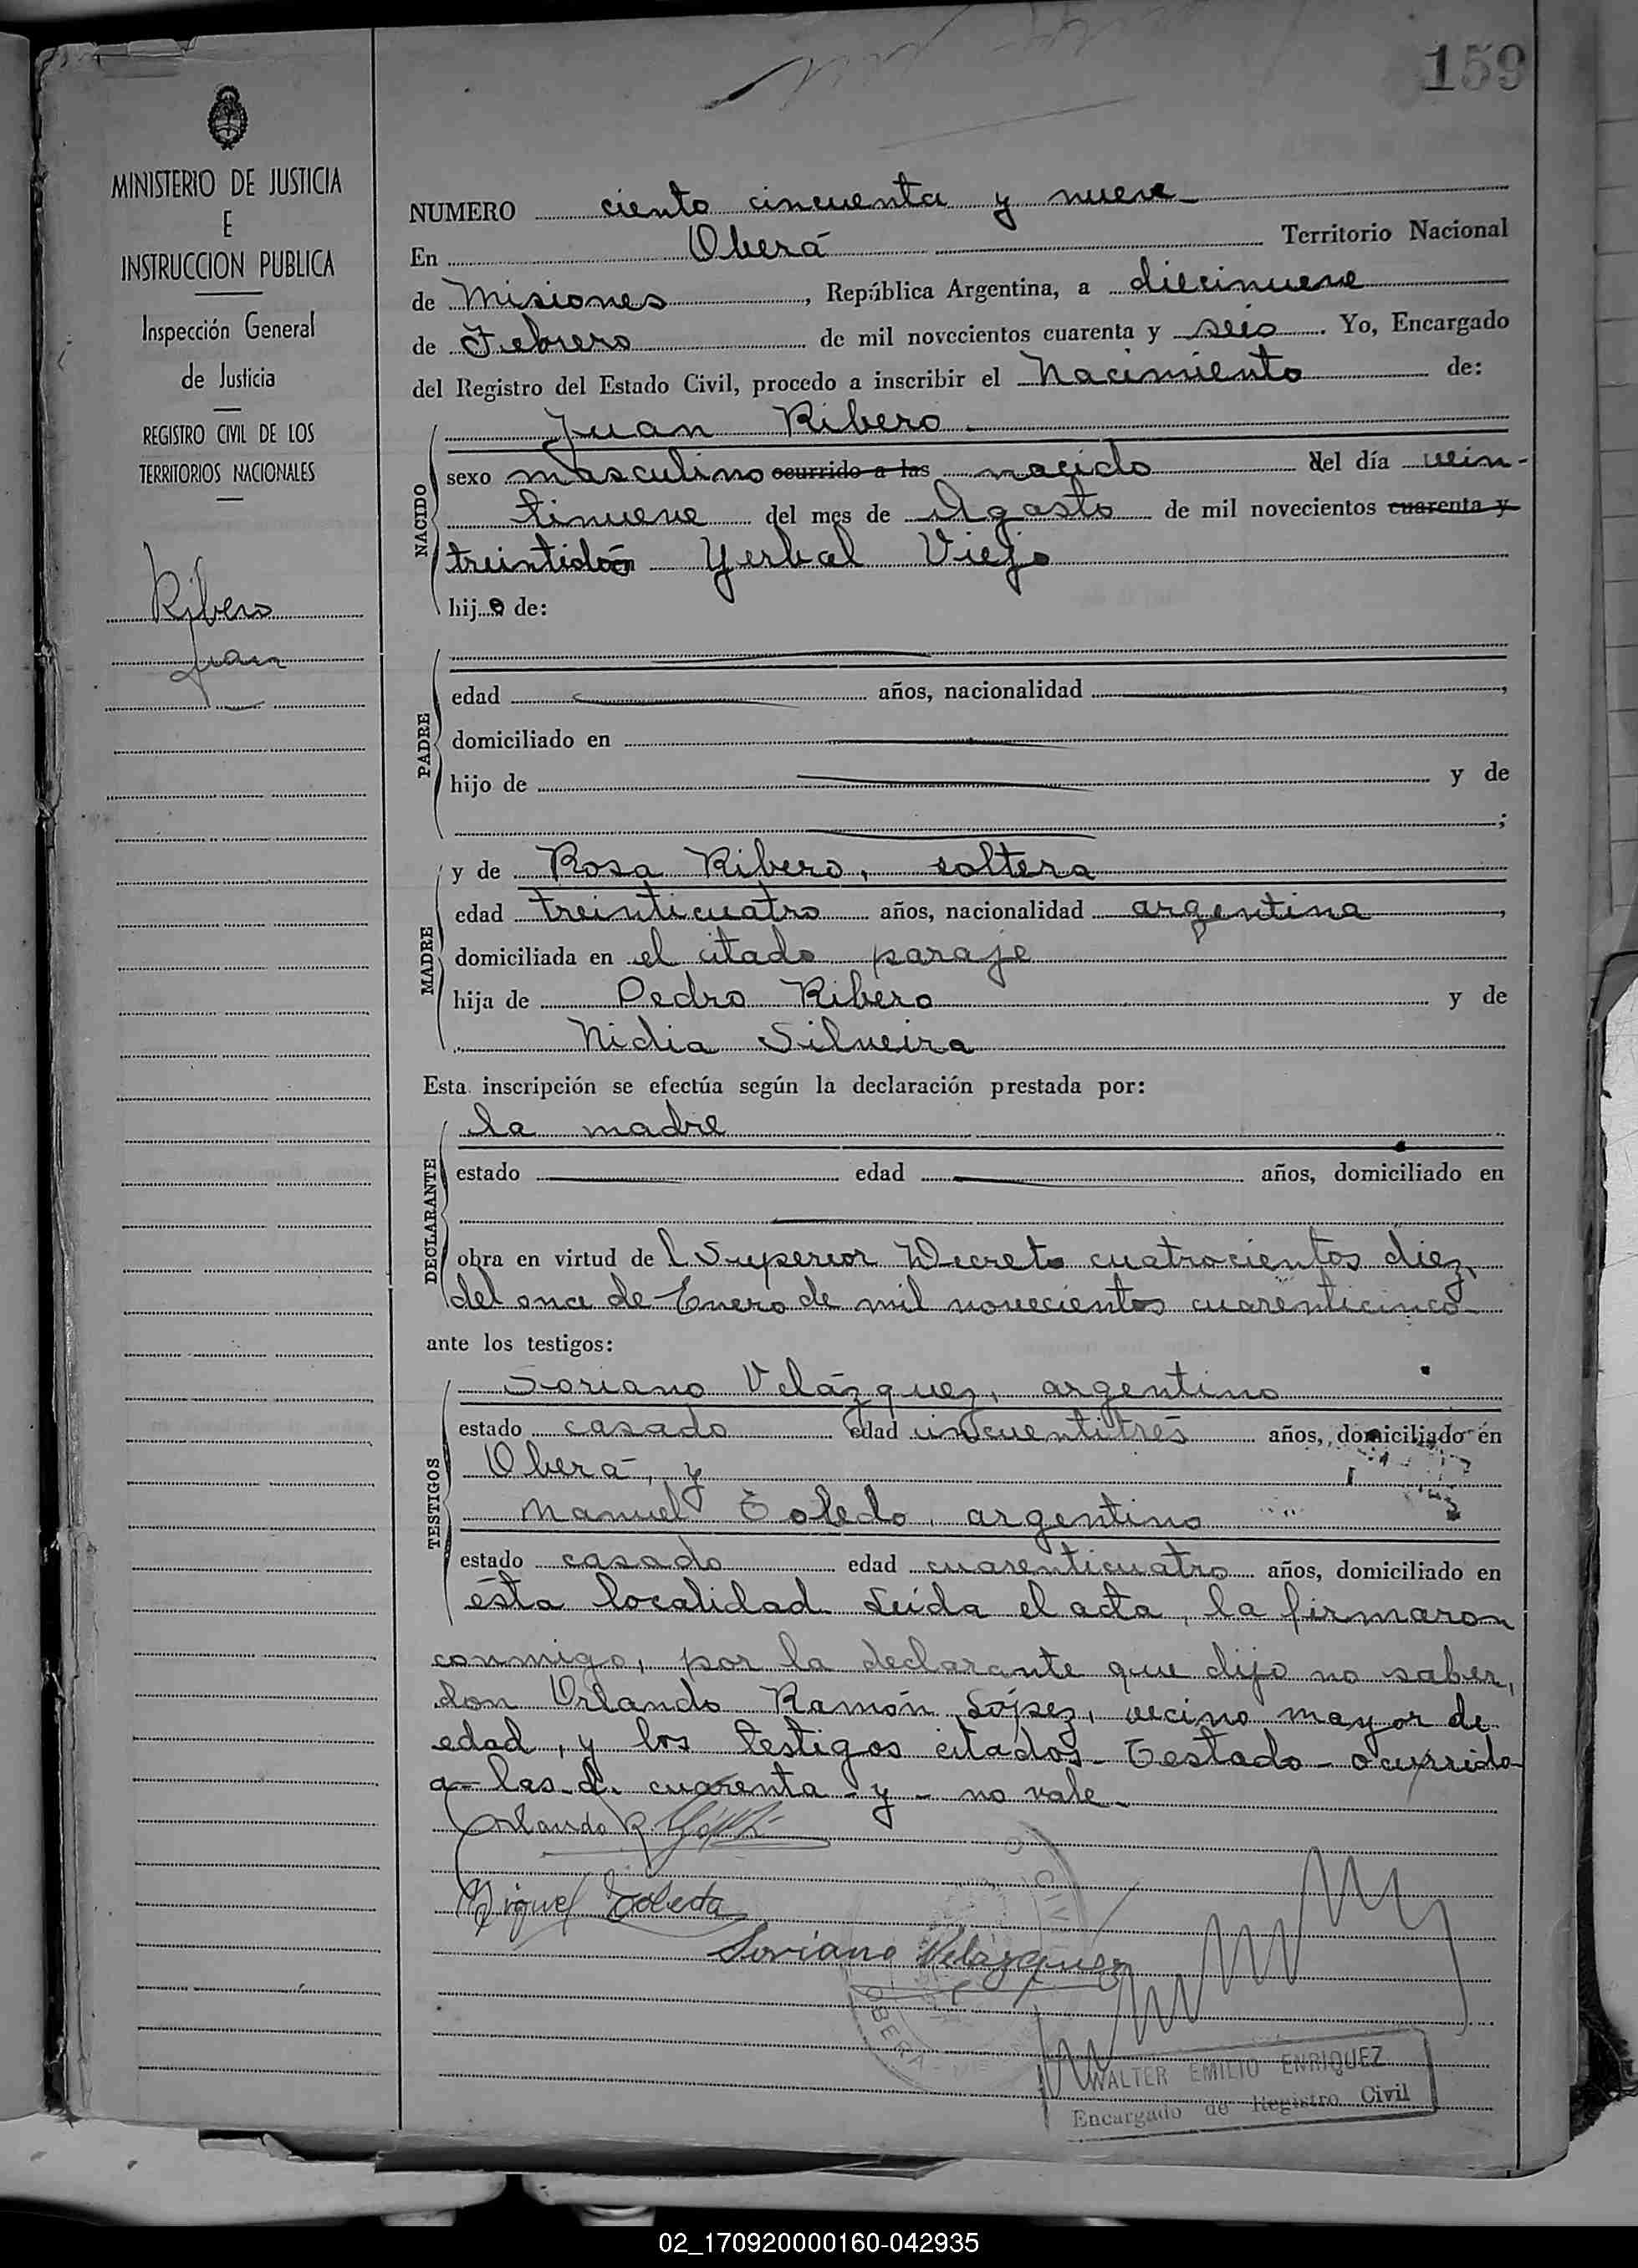 159
MINISTERIO DE JUSTICIA
E
INSTRUCCION PUBLICA
Inspección General
de Justicia
REGISTRO CIVIL DE LOS
TERRITORIOS NACIONALES
Ribero
Juan
NUMERO ciento cincuenta y nueve
En Oberá Territorio Nacional
de Misiones, República Argentina, a diecinueve
de Febrero de mil novecientos cuarenta y seis. Yo, Encargado
del Registro del Estado Civil, procedo a inscribir el Nacimiento de:
NACIDO
Juan Ribero.
sexo masculino ocurrido a las nacido del día vein-
tinueve del mes de Agosto de mil novecientos cuarenta y
treintidós Yerbal Viejo
hijo de:
PADRE
edad años, nacionalidad ,
domiciliado en
hijo de y de
;
MADRE
y de Rosa Ribero, soltera
edad treinticuatro años, nacionalidad argentina,
domiciliada en el citado paraje
hija de Pedro Ribero y de
Nidia Silveira
Esta inscripción se efectúa según la declaración prestada por:
DECLARANTE
la madre
estado edad años, domiciliado en
obra en virtud del Superior Decreto cuatrocientos diez,
del once de Enero de mil novecientos cuarenticinco
ante los testigos:
TESTIGOS
Soriano Velázquez, argentino
estado casado edad cincuentitrés años, domiciliado en
Oberá, y
Manuel Toledo, argentino
estado casado edad cuarenticuatro años, domiciliado en
ésta localidad. Leída el acta, la firmaron
conmigo, por la declarante que dijo no saber,
don Orlando Ramón López, vecino mayor de
edad, y los testigos citados- Testado- ocurrido-
a- las- d. cuarenta- y- no vale-
Orlando R. López
Miguel Toledo
Soriano Velázquez
OBERA
WALTER EMILIO ENRIQUEZ
Encargado de Registro Civil
02_170920000160-042935